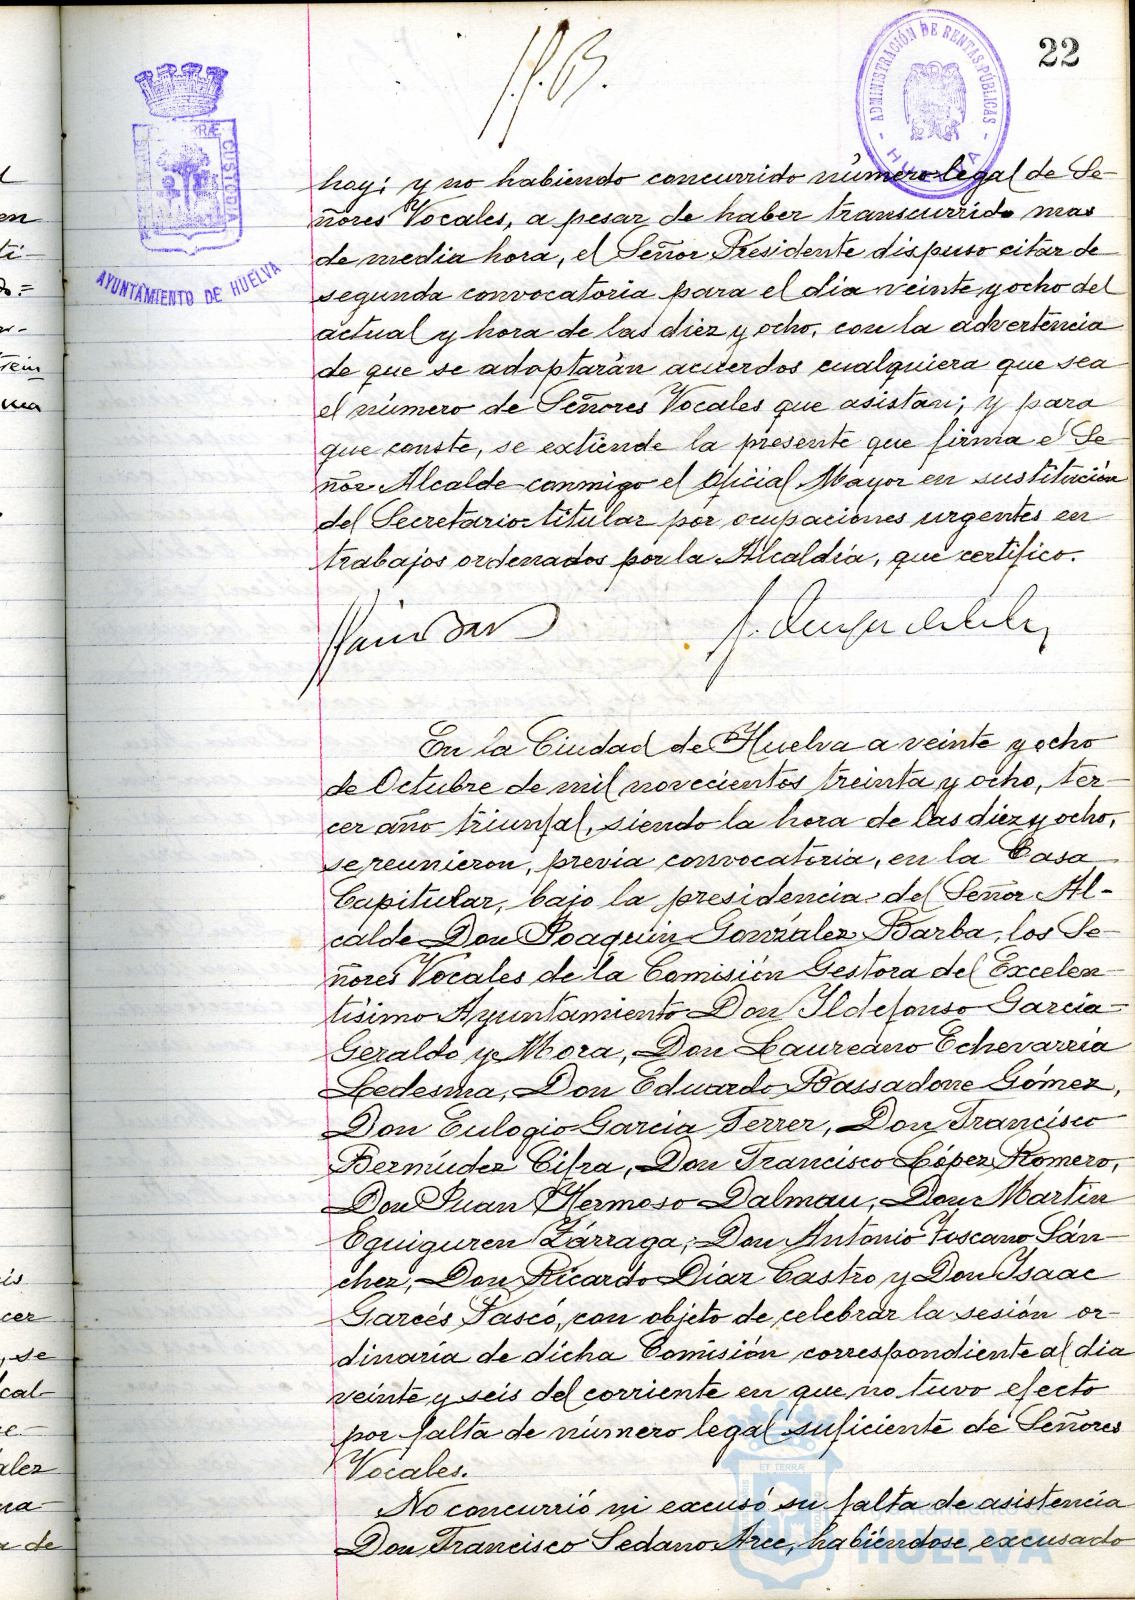 22
ADMINISTRACIÓN DE RENTAS PÚBLICAS
HUELVA
TERRÆ CUSTODIA
AYUNTAMIENTO DE HUELVA
hoy; y no habiendo concurrido número legal de Se-
ñores Vocales, a pesar de haber transcurrido mas
de media hora, el Señor Presidente dispuso citar de
segunda convocatoria para el dia veinte y ocho del
actual y hora de las diez y ocho, con la advertencia
de que se adoptarán acuerdos cualquiera que sea
el número de Señores Vocales que asistan; y para
que conste, se extiende la presente que firma el Se-
ñor Alcalde conmigo el Oficial Mayor en sustitución
del Secretario titular por ocupaciones urgentes en
trabajos ordenados por la Alcaldía, que certifico.
En la Ciudad de Huelva a veinte y ocho
de Octubre de mil novecientos treinta y ocho, ter-
cer año triunfal, siendo la hora de las diez y ocho,
se reunieron, previa convocatoria, en la Casa
Capitular, bajo la presidencia del Señor Al-
calde Don Joaquín González Barba, los Se-
ñores Vocales de la Comisión Gestora del Excelen-
tísimo Ayuntamiento Don Ildefonso García
Geraldo y Mora, Don Laureano Echevarría
Ledesma, Don Eduardo Bassadone Gómez,
Don Eulogio García Ferrer, Don Francisco
Bermúdez Cifra, Don Francisco López Romero,
Don Juan Hermoso Dalmau, Don Martín
Eguiguren Zárraga, Don Antonio Toscano Sán-
chez, Don Ricardo Díaz Castro y Don Isaac
Garcés Pascó, con objeto de celebrar la sesión or-
dinaria de dicha Comisión correspondiente al dia
veinte y seis del corriente en que no tuvo efecto
por falta de número legal suficiente de Señores
Vocales.
No concurrió ni excusó su falta de asistencia
Don Francisco Sedano Arce, habiéndose excusado
Ayuntamiento de
HUELVA